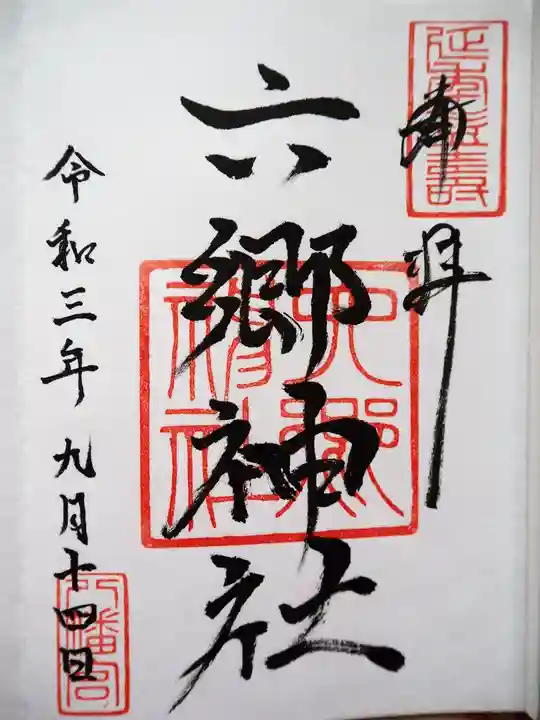 奉拝
六郷神社
令和三年九月十四日
六郷神社
八幡宮